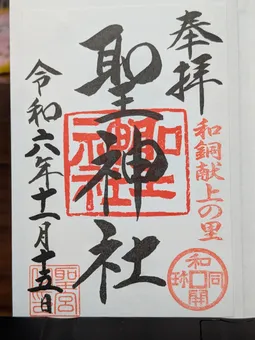 奉拝
和銅献上の里
和同開珎
聖神社
令和六年十一月十五日